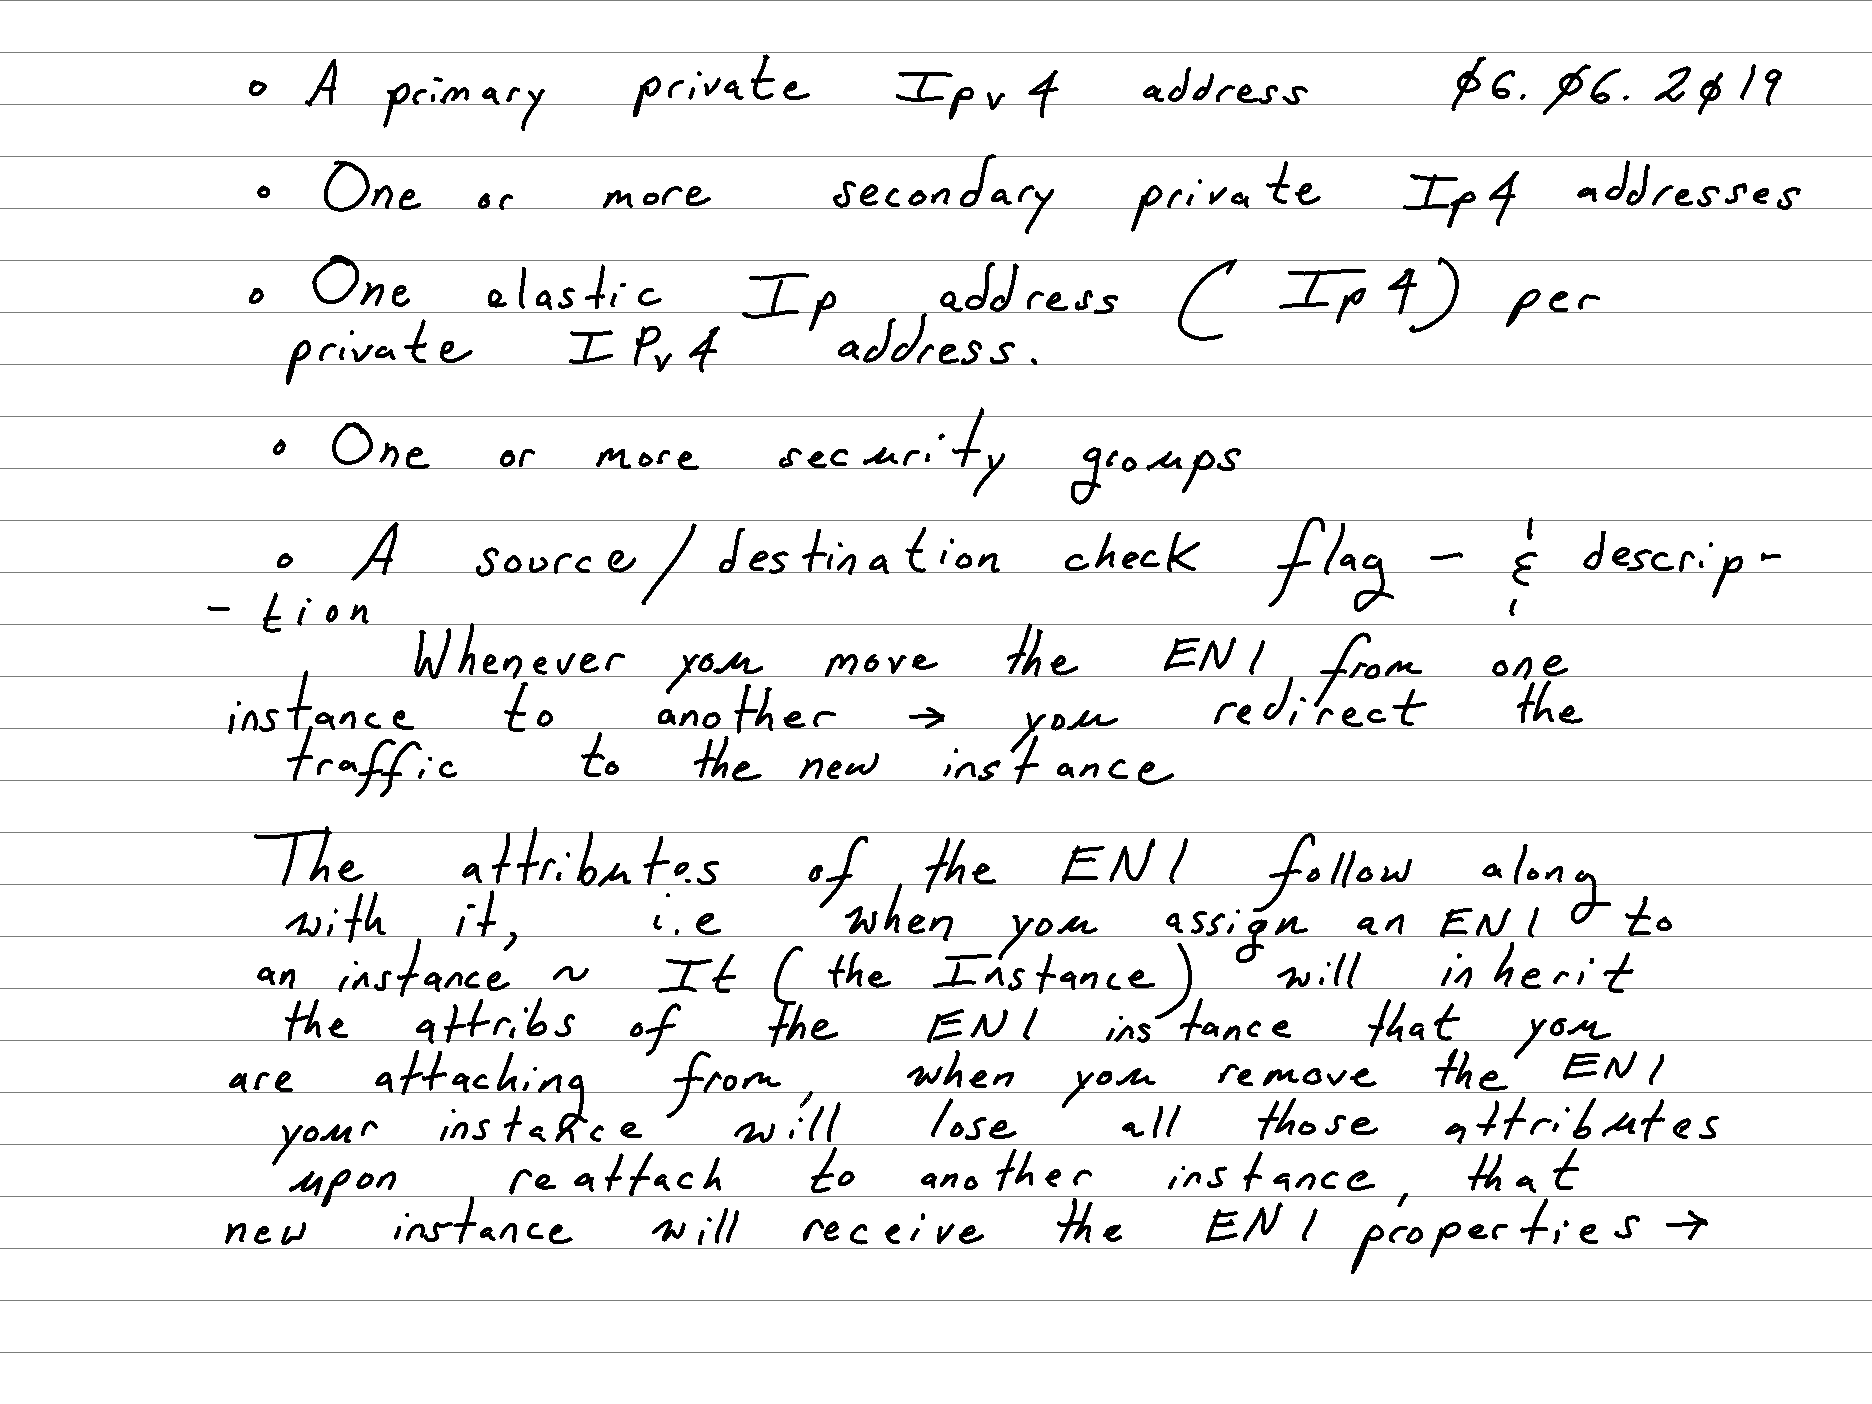 ◦ A primary private Ipv4 address 06.06.2019
◦ One or more secondary private Ip4 addresses
◦ One elastic Ip address (Ip4) per
private IPv4 address.
◦ One or more security groups
◦ A source/destination check flag - & descrip-
-tion
Whenever you move the ENI from one
instance to another → you redirect the
traffic to the new instance
The attributes of the ENI follow along
with it, i.e when you assign an ENI to
an instance ~ It (the Instance) will inherit
the attribs of the ENI instance that you
are attaching from, when you remove the ENI
your instance will lose all those attributes
upon reattach to another instance, that
new instance will receive the ENI properties →